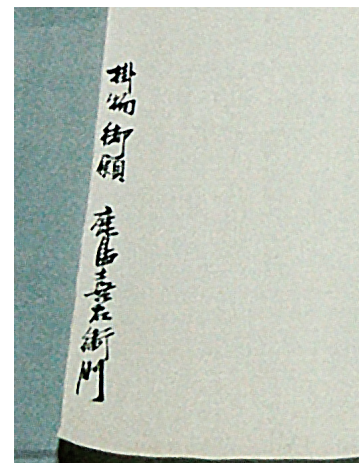 掛物御願 鹿島喜右衛門